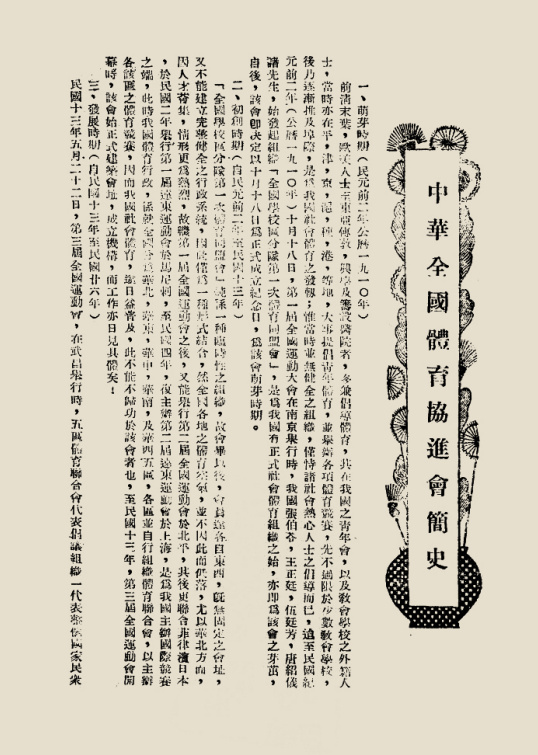 中華全國體育協進會簡史
一、萌芽時期(民元前二年公曆一九一〇年)
前清末葉,歐美人士至東亞傳敎,興學及籌設醫院者,多兼倡導體育,其在我國之靑年會,以及敎會學校之外籍人
士,當時亦在平,津,京,滬,漢,港,等地,大事提倡靑年體育,並舉辦各項體育競賽,先不過限於少數敎會學校,
後乃逐漸推及埠際,是爲我國社會體育之發軔,惟當時並無健全之組織,僅恃諸社會熱心人士之倡導而已,迨至民國紀
元前二年(公曆一九一〇年)十月十八日,第一屆全國運動大會在南京舉行時,我國張伯苓,王正廷,伍廷芳,唐紹儀
諸先生,始發起組織「全國學校區分隊第一次體育同盟會」,是爲我國有正式社會體育組織之始,亦即爲該會之芽茁,
自後,該會即決定以十月十八日爲正式成立紀念日,爲該會萌芽時期。
二、初創時期(自民元前二年至民國十三年)
「全國學校區分隊第一次體育同盟會」純係一種臨時性之組織,故會畢以後,會員遂各自東西,旣無固定之會址,
又不能建立完整健全之行政系統,因此僅爲一種形式結合,然全國各地之體育空氣,並不因此而低落,尤以華北方面,
因人才薈集,情形更爲熱烈,故繼第一屆全國運動會之後,又能舉行第二屆全國運動會於北平,其後更聯合菲律濱日本
,於民國二年舉行第一屆遠東運動會於馬尼剌,至民國四年,復主辦第二屆遠東運動會於上海,是爲我國主辦國際競賽
之端,此時我國體育行政,係就全國分爲華北,華東,華中,華南,及華西五區,各區並自行組織體育聯合會,以主辦
各該區之體育競賽,因而我國社會體育,遂日益普及,此不能不歸功於該會者也,至民國十三年,第三屆全國運動會開
幕時,該會始正式建築會址,成立機構,而工作亦日見其體矣!
三、發展時期(自民國十三年至民國廿六年)
民國十三年五月二十二日,第三屆全國運動會,在武昌舉行時,五區體育聯合會代表倡議組織一代表整個國家民衆